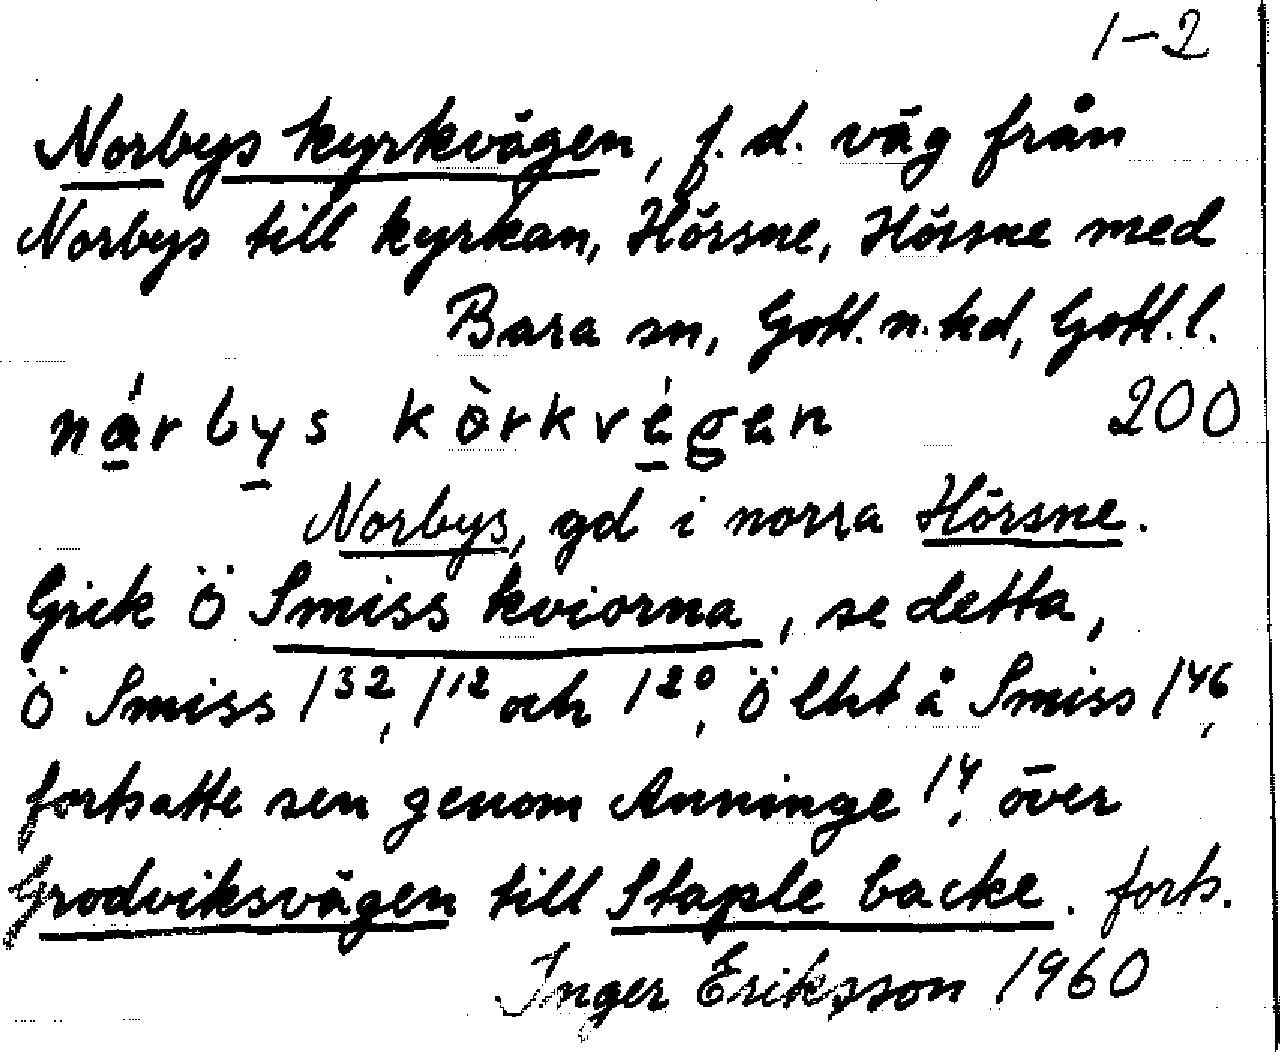 1-2
Norbys kyrkvägen, f. d. väg från
Norbys till kyrkan, Hörsne, Hörsne med
Bara sn, Gotl. n. hd, Gotl. l.
nárbys kòrkvégen 200
Norbys, gd i norra Hörsne.
Gick Ö Smiss kviorna, se detta,
Ö Smiss 1³², 1¹² och 1²⁰, Ö lht å Smiss 1⁴⁶,
fortsatte sen genom Anninge 1⁴, över
Grodviksvägen till Staple backe. forts.
Inger Eriksson 1960